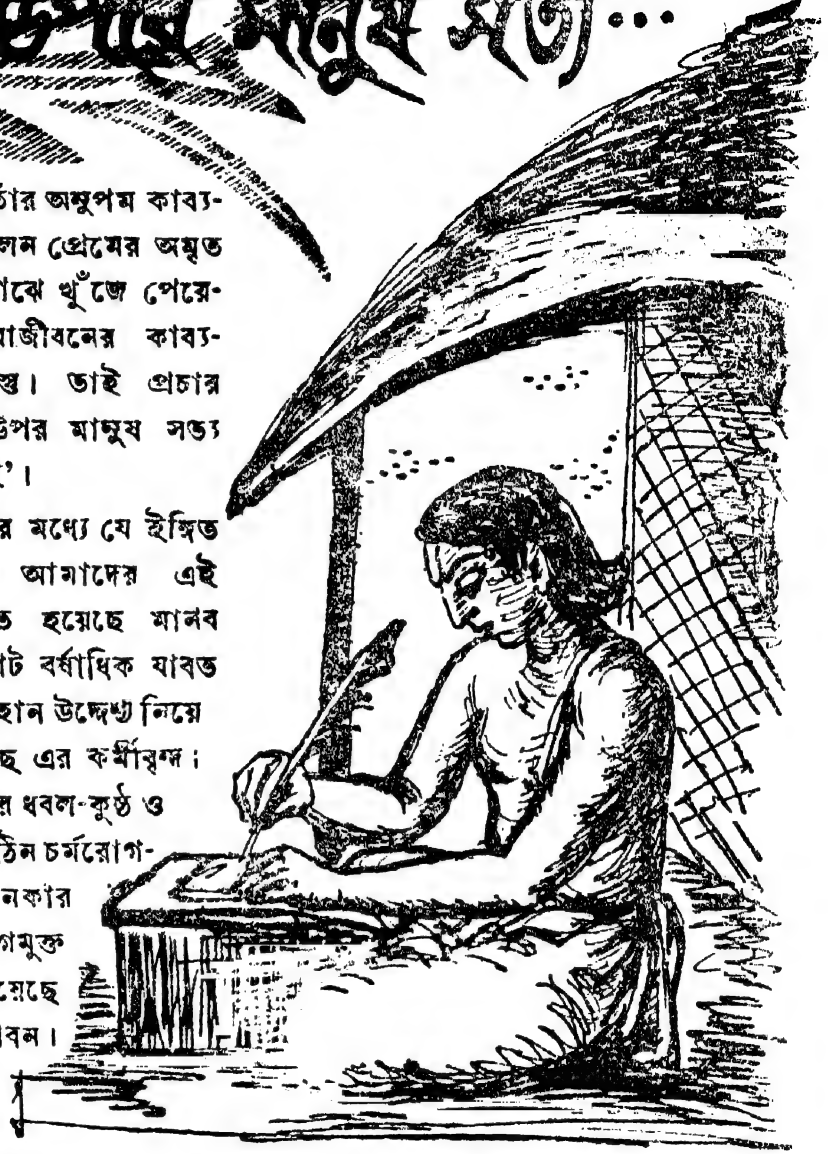 উপরে মানুষ সত্য...
তাঁর অনুপম কাব্য-
লেন প্রেমের অমৃত
মাঝে খুঁজে পেয়ে-
জীবনের কাব্য-
স্তু। তাই প্রচার
উপর মানুষ সত্য
ই’।
র মধ্যে যে ইঙ্গিত
আমাদের এই
ত হয়েছে মানব
ষাট বর্ষাধিক যাবত
হান উদ্দেশ্য নিয়ে
ছে এর কর্মীবৃন্দ।
র ধবল-কুষ্ঠ ও
ঠিন চর্মরোগ-
নকার
গমুক্ত
য়েছে
বন।